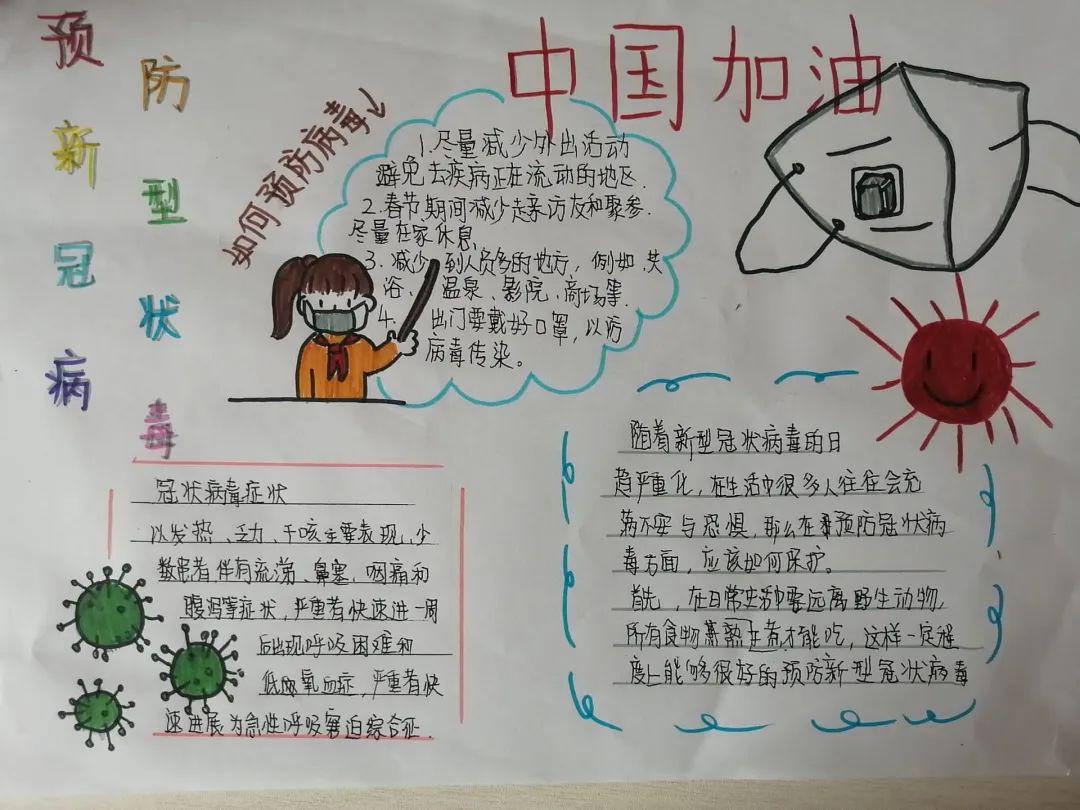 预防新型冠状病毒
中国加油
如何预防病毒
1.尽量减少外出活动
避免去疾病正在流动的地区.
2.春节期间减少走亲访友和聚参.
尽量在家休息,
3.减少到人员多的地方,例如,
浴、温泉、影院、商场等.
4.出门要戴好口罩,以防
病毒传染。
冠状病毒症状
以发热、乏力、干咳主要表现,少
数患者伴有流涕、鼻塞,咽痛和
腹泻等症状,严重者快速进一周
后出现呼吸困难和
低血氧血症,严重者快
速进展为急性呼吸窘迫综合征.
随着新型冠状病毒的日
趋严重化,在生活中很多人往往会充
满不安与恐惧,那么在预防冠状病
毒方面,应该如何保护。
首先,在日常生活中要远离野生动物,
所有食物蒸熟煮才能吃,这样一定程
度上能够很好的预防新型冠状病毒